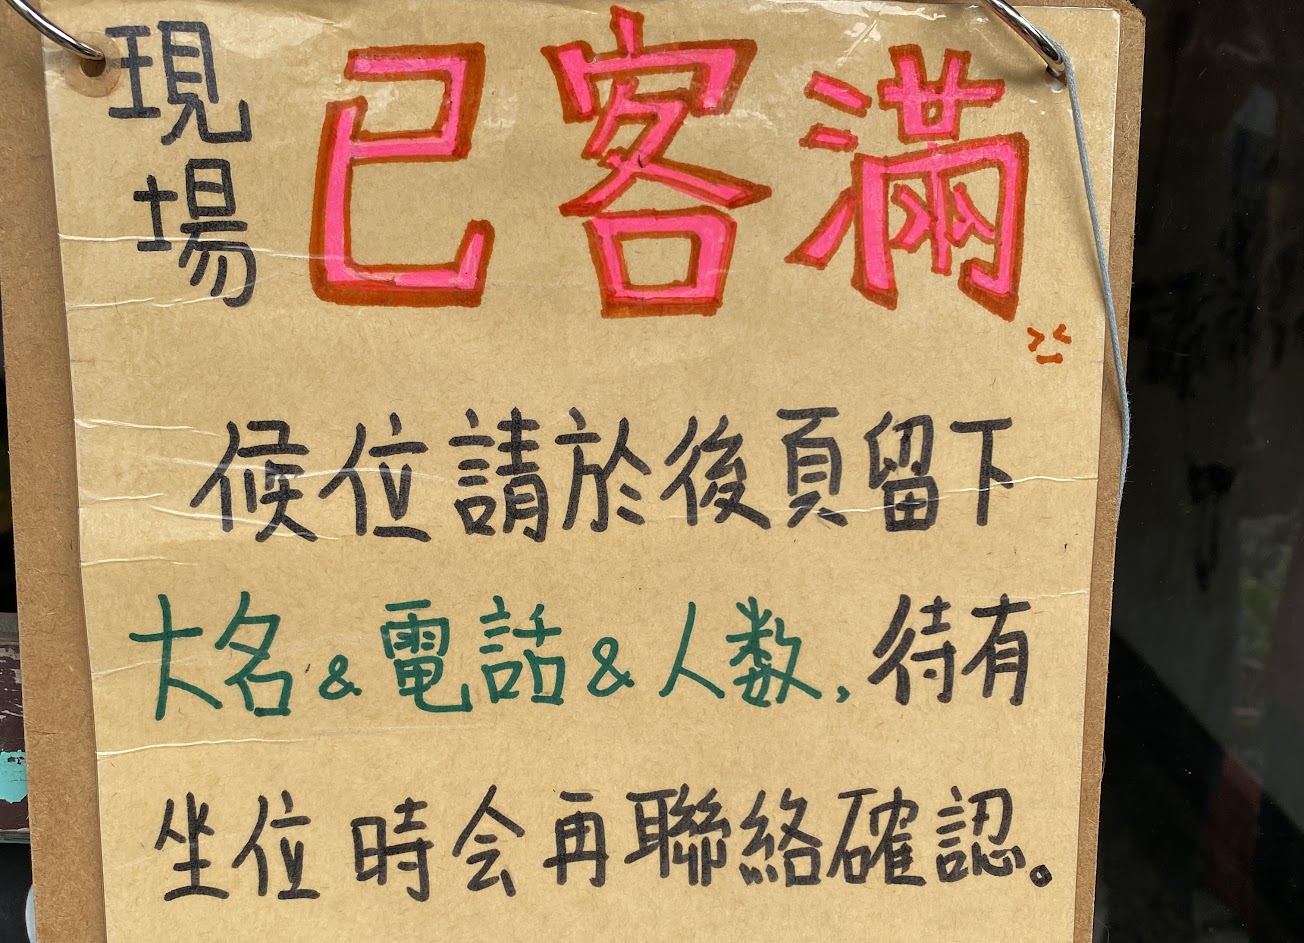 現場
已客滿
候位請於後頁留下
大名&電話&人数,待有
坐位時会再聯絡確認。